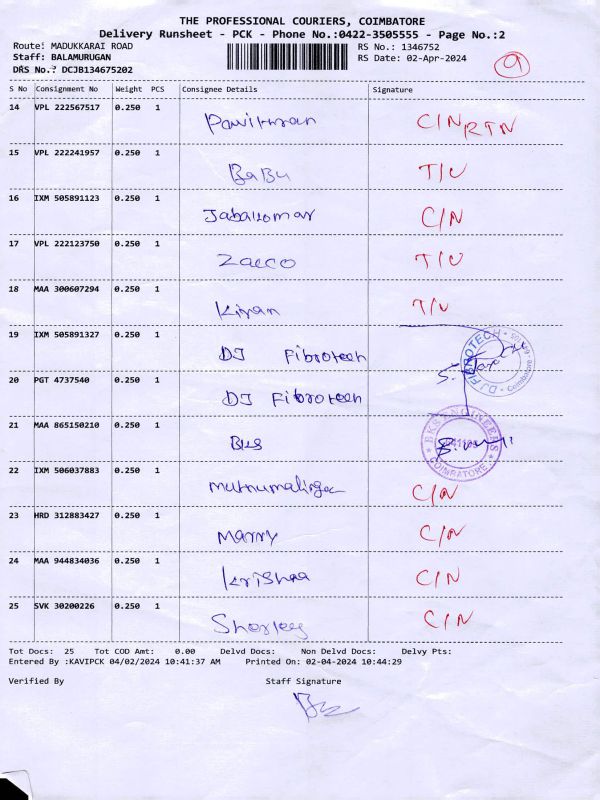 THE PROFESSIONAL COURIERS, COIMBATORE
Delivery Runsheet - PCK - Phone No.:0422-3505555 - Page No.:2
Route: MADUKKARAI ROAD RS No.: 1346752
Staff: BALAMURUGAN RS Date: 02-Apr-2024
DRS No.: DCJB134675202
9
S No Consignment No Weight PCS Consignee Details Signature
14 VPL 222567517 0.250 1 C/N RTN
15 VPL 222241957 0.250 1 BaBu T/U
16 IXM 505891123 0.250 1 Jabakumar C/N
17 VPL 222123750 0.250 1 Zacco T/U
18 MAA 300607294 0.250 1 Kiran T/U
19 IXM 505891327 0.250 1 DJ Fibrotech
DJ FIBROTECH Coimbatore
20 PGT 4737540 0.250 1 DJ Fibrotech
21 MAA 865150210 0.250 1 BKS
BKS ENGINEERS COIMBATORE
22 IXM 506037883 0.250 1 C/N
23 HRD 312883427 0.250 1 Marry C/N
24 MAA 944834036 0.250 1 Krishna C/N
25 SVK 30200226 0.250 1 C/N
Tot Docs: 25 Tot COD Amt: 0.00 Delvd Docs: Non Delvd Docs: Delvy Pts:
Entered By :KAVIPCK 04/02/2024 10:41:37 AM Printed On: 02-04-2024 10:44:29
Verified By Staff Signature